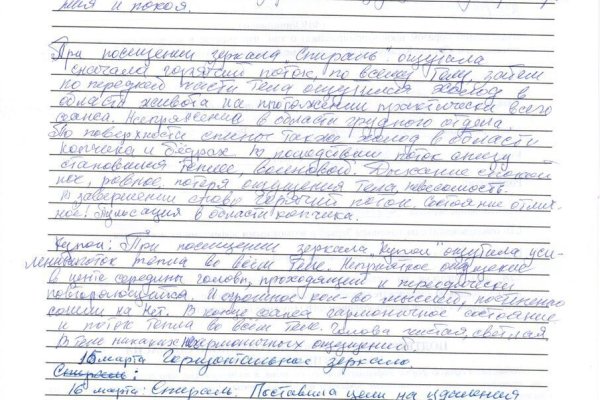 мия и покоя.
При посещении зеркала "Спираль" ощутила
сначала горячий поток, по всему телу, затем
по передней части тела ощущался холод в
области живота на протяжении практически всего
сеанса. Напряжение в области грудного отдела.
По поверхности спины также холод в области
копчика и бедрах. В последствии поток снизу
становился теплее, волновой. Дыхание спокой
ное, ровное, потеря ощущения тела, невесомость.
В завершении снова горячий поток. Состояние отлич-
ное. Пульсация в области копчика.
Купол: При посещении зеркала "Купол" ощутила уси-
ление поток тепла во всем теле. Неприятное ощущение
в центре середины головы, проходящий и периодически
повторяющийся. И огромное кол-во мыслей, постепенно
сошли на нет. В конце сеанса гармоничное состояние
и поток тепла во всем теле. Голова чистая, светлая,
в теле никаких негармоничных ощущений.
15 марта Горизонтальное зеркало.
Спираль:
16 марта: Спираль. Поставила цели на удаления